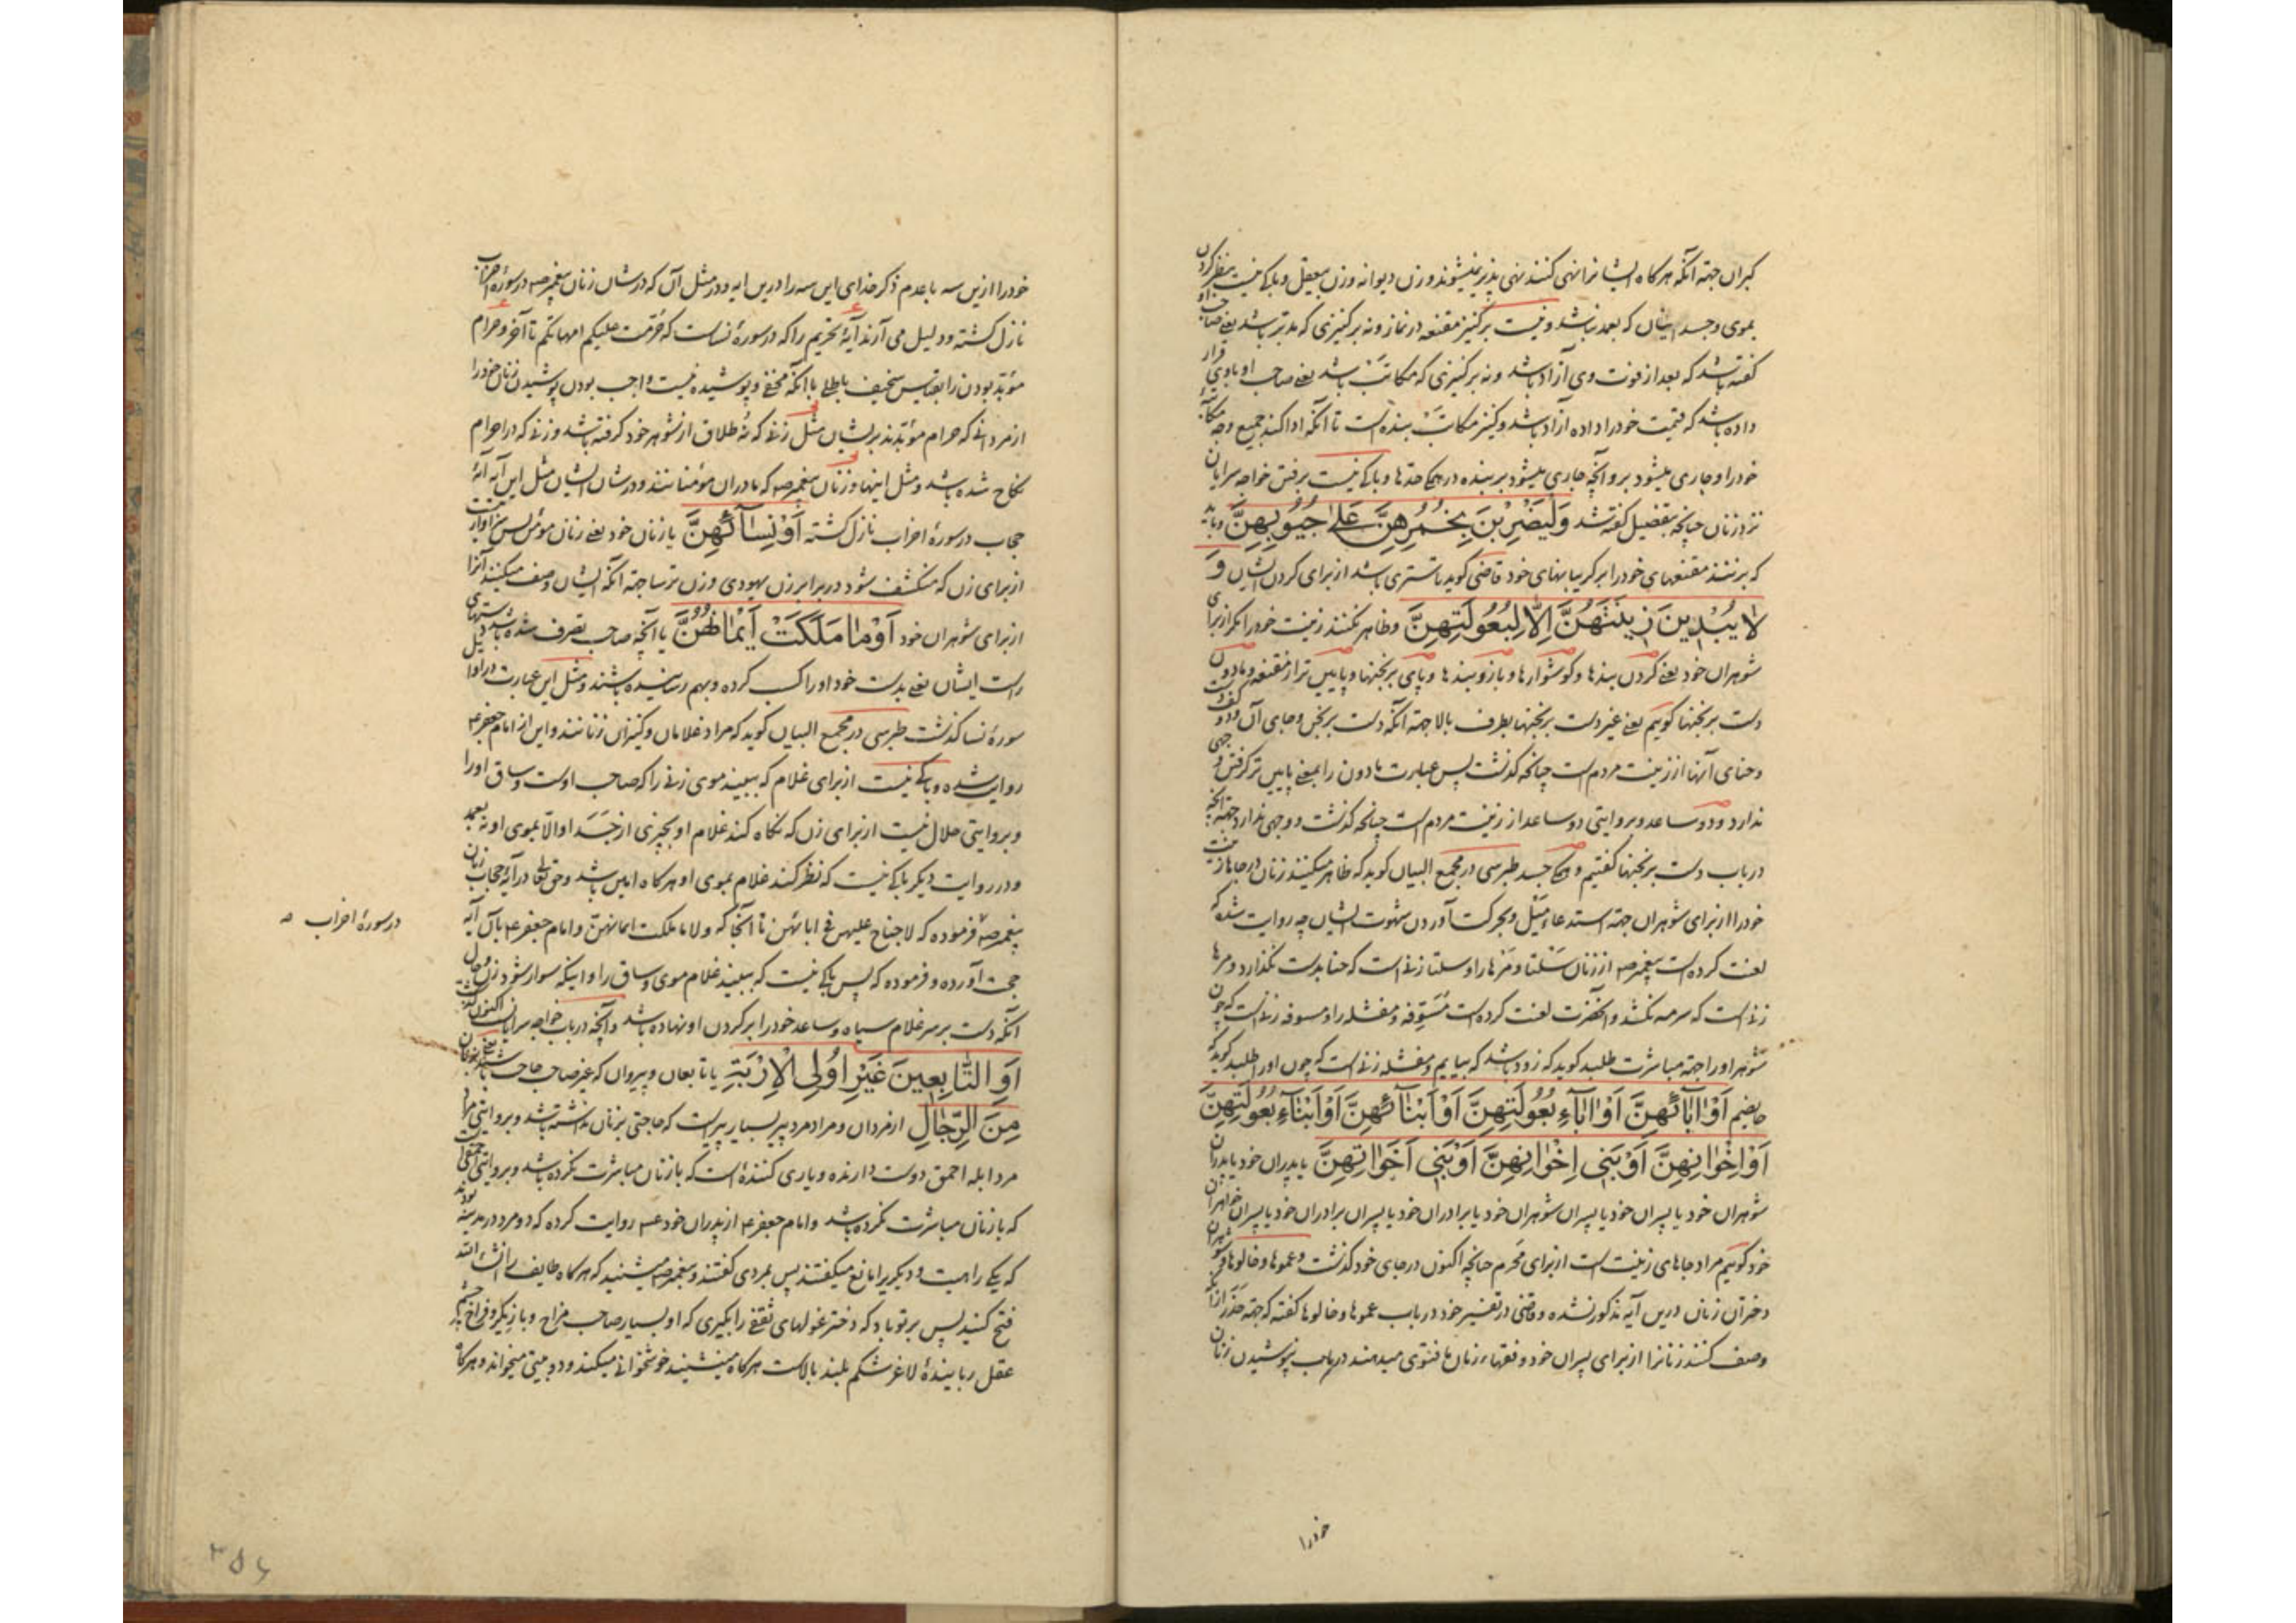 کبران جهة آنکه هرکاه ایشانرا نهی کنند نهی پذیر نمیشوند و زن دیوانه و زن بیعقل و باکی نیست بنظر کردن
بموی و جسد ایشان که بعمد نباشد و نیست برکنیز مقنعه در نماز و نه برکنیزی که مدبر باشد یعنی صاحب او
کفته باشد که بعد از فوت وی آزاد باشد و نه برکنیزی که مکاتب باشد یعنی صاحب او با وی قرار
داده باشد که قیمت خود را داده آزاد باشد و کنیز مکاتب بنده است تا آنکه ادا کند جمیع وجه مکاتبه
خود را و جاری میشود برو آنچه جاری میشود بر بنده در همکی حدها و باکی نیست برفتن خواجه سرایان
نزد زنان چنانچه بتفصیل کفته شد وَلْيَضْرِبْنَ بِخُمُرِهِنَّ عَلىٰ جُيُوبِهِنَّ و باید
که برنند مقنعهای خود را بر کریبانهای خود قاضی کوید تا ستری باشد از برای کردن ایشان وَ
لا يُبْدِينَ زِينَتَهُنَّ إِلّا لِبُعُولَتِهِنَّ و ظاهر نکنند زینت خود را مکر از برای
شوهران خود یعنی کردن بندها و کوشوارها و بازو بندها و پای برنجنها و پایین تر از مقنعه و مادون
دست برنجنها کوییم یعنی غیر دست برنجنها بطرف بالا جهة آنکه دست برنجن و جای آن و دو کف دست
و حنای آنها از زینت مردم است چنانچه کذشت پس عبارت مادون را بمعنی پایین تر کرفتن وجهی
ندارد و دو ساعد و بروایتی دو ساعد از زینت مردم است چنانچه کذشت و وجهی ندارد جهة آنچه
در باب دست برنجنها کفتیم و همکی جسد طبرسی در مجمع البیان کوید که ظاهر میکنند زنان جاهای زینت
خود را از برای شوهران جهة استدعاء میل و بحرکت آوردن شهوت ایشان چه روایت شده که
لعنت کرده است پیغمبر صه از زنان سلتا و مرها را و سلتا زنی است که حنا بدست نکذارد و مرها
زنی است که سرمه نکشد و آنحضرت لعنت کرده است مسوفه و مفشله را و مسوفه زنی است که چون
شوهر او را جهة مباشرت طلبد کوید که زود باشد که بیایم و مفشله زنی است که چون او را طلبد کوید که
حایضم أَوْ اٰبٰائِهِنَّ أَوْ اٰبٰاءِ بُعُولَتِهِنَّ أَوْ أَبْنٰائِهِنَّ أَوْ أَبْنٰاءِ بُعُولَتِهِنَّ
أَوْ إِخْوٰانِهِنَّ أَوْ بَنِي إِخْوٰانِهِنَّ أَوْ بَنِي أَخَوٰاتِهِنَّ یا پدران خود یا پدران
شوهران خود یا پسران خود یا پسران شوهران خود یا برادران خود یا پسران برادران خود یا پسران خواهران
خود کوییم مراد جاهای زینت است از برای محرم چنانچه اکنون در جای خود کذشت و عموها و خالوها و شوهران
دختران زنان درین آیه مذکور نشده و قاضی در تفسیر خود در باب عموها و خالوها کفته که جهة حذر از آنکه
وصف کنند زنانرا از برای پسران خود و فقهاء زمان ما فتوی میدهند در باب نپوشیدن زنان
خود را
خود را ازین سه با عدم ذکر خدای این سه را درین ایه و در مثل آن که در شان زنان پیغمبر صه در سورهٔ احزاب
نازل کشته و دلیل می آرند آیهٔ تحریم را که در سورهٔ نساست که حُرّمت علیکم امهاتکم تا آخر و حرام
مؤبد بودن را بقیاس سخیف باطلی با آنکه مخفی و پوشیده نیست واجب بودن پوشیدن زنان خود را
از مردانی که حرام مؤبدند بر ایشان مثل زنی که نه طلاق از شوهر خود کرفته باشد و زنی که در احرام
نکاح شده باشد و مثل اینها و زنان پیغمبر صه که مادران مؤمنانند و در شان ایشان مثل این آیه آیهٔ
حجاب در سورهٔ احزاب نازل کشته أَوْ نِسٰائِهِنَّ یا زنان خود یعنی زنان مؤمن پس سزاوار نیست
از برای زن که منکشف شود در برابر زن یهودی و زن ترسا جهة آنکه ایشان وصف میکنند آنرا
از برای شوهران خود أَوْ مٰا مَلَكَتْ أَيْمٰانُهُنَّ یا آنچه صاحب تصرف شده باشد دستهای
راست ایشان یعنی بدست خود او را کسب کرده و بهم رسانیده باشند و مثل این عبارت در اوایل
سورهٔ نسا کذشت طبرسی در مجمع البیان کوید که مراد غلامان و کنیزان زنانند و این از امام جعفر ع
روایت شده و باکی نیست از برای غلام که ببیند موی زنی را که صاحب اوست و ساق او را
و بروایتی حلال نیست از برای زن که نکاه کند غلام او بچیزی از جَسَد او الّا بموی او نه بعمد
و در روایت دیکر باکی نیست که نظر کند غلام بموی او هرکاه امین باشد و حق تعا در آیهٔ حجاب زنان
پیغمبر صه فرموده که لا جناح علیهن فی ابائهن تا آنجا که ولا ما ملکت ایمانهنّ و امام جعفر ع بآن آیه
حجت آورده و فرموده که پس باکی نیست که ببیند غلام موی و ساق را و اینکه سوار شود زن و حال
آنکه دست بر سر غلام سیاه و ساعد خود را بر کردن او نهاده باشد و آنچه در باب خواجه سرایان است اکنون کذشت
أَوِ التّٰابِعِينَ غَيْرِ أُولِي الْإِرْبَةِ یا تابعان و پیروان که غیر صاحب حاجت باشند یعنی بزنان
مِنَ الرِّجٰالِ از مردان و مراد مرد پیر بسیار پیر است که حاجتی بزنان نداشته باشد و بروایتی مراد
مرد ابله احمق دوست دارنده و یاری کنندهٔ است که با زنان مباشرت نکرده باشد و بروایتی احمقی است
که با زنان مباشرت نکرده باشد و امام جعفر ع از پدران خود ع روایت کرده که دو مرد در مدینه بودند
که یکی را هیت و دیکریرا مانع میکفتند پس بمردی کفتند و پیغمبر صه میشنید که هرکاه طایف را انشاء الله
فتح کنید پس بر تو باد که دختر غولهای ثقفی را بکیری که او بسیار صاحب مزاح و بازیکر و فراخ چشم
عقل ربایندهٔ لاغر شکم بلند بالاست هرکاه مینشیند خوشخوانی میکند و دو میتی میخواند و هرکاه
در سورهٔ احزاب صه